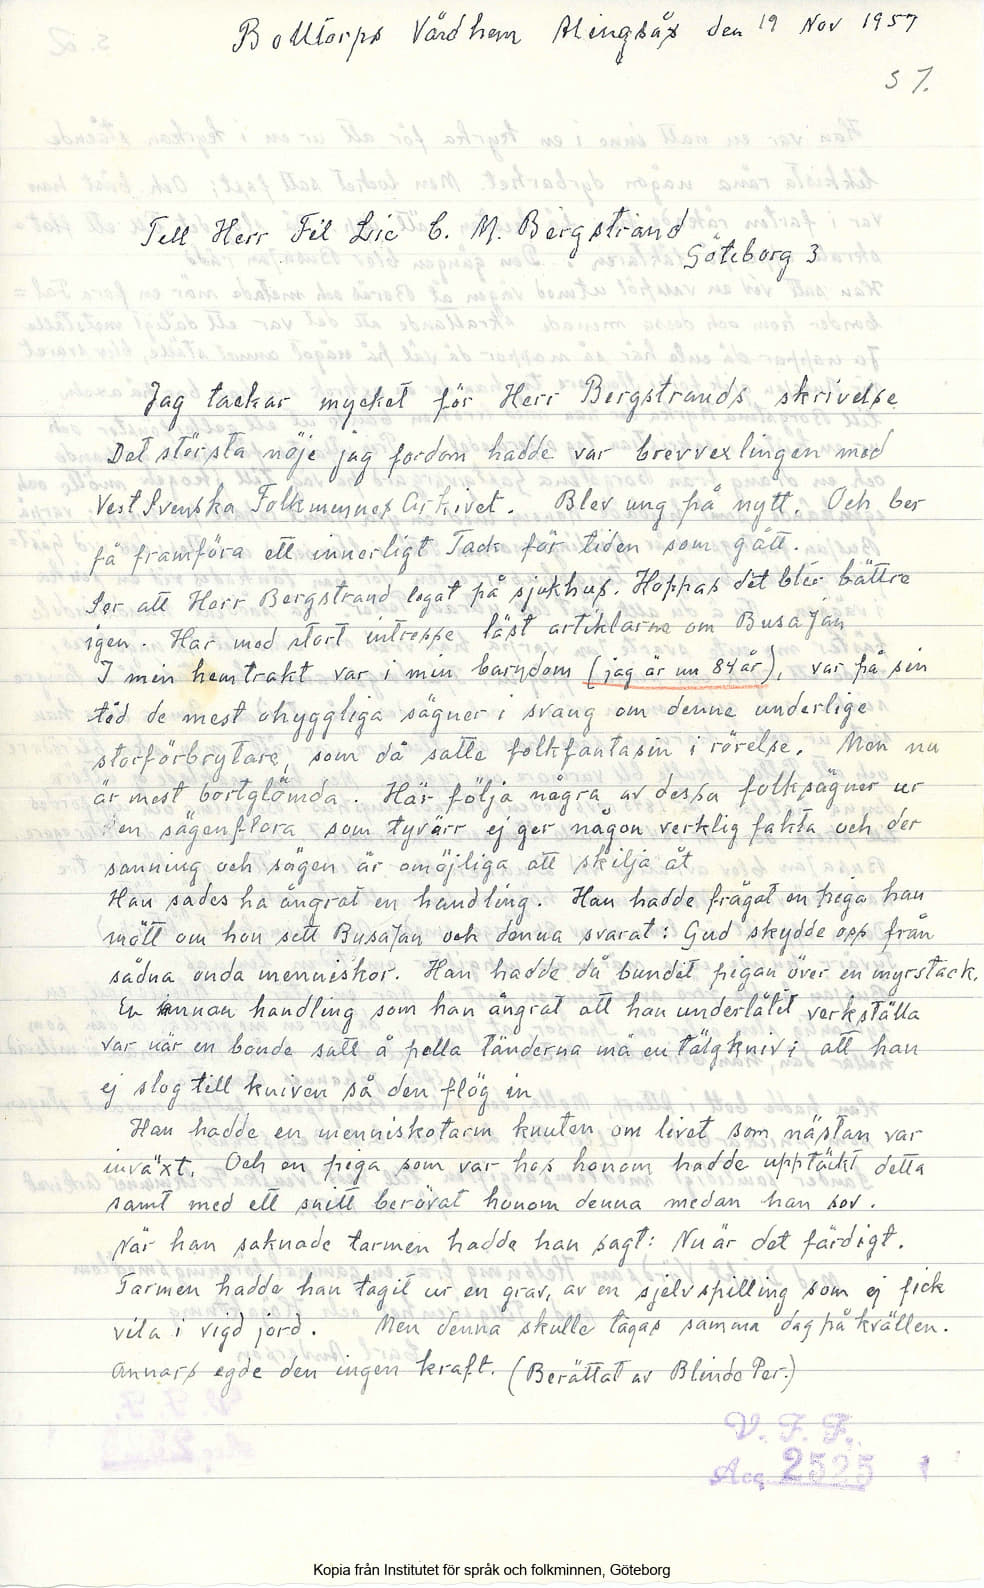 Bolltorps Vårdhem Alingsås den 19 Nov 1957
S 1.
Till Herr Fil Lic C. M. Bergstrand
Göteborg 3
Jag tackar mycket för Herr Bergstrands skrivelse
Det största nöje jag fordom hadde var brevvexlingen med
VestSvenska FolkminnesArkivet. Blev ung på nytt. Och ber
få framföra ett innerligt Tack för tiden som gått.
Ser att Herr Bergstrand legat på sjukhus. Hoppas det blir bättre
igen. Har med stort intresse läst artiklarne om BusaJan
I min hemtrakt var i min barndom (jag är nu 84 år), var på sin
tid de mest ohyggliga sägner i svang om denne underlige
storförbrytare, som då satte folkfantasin i rörelse. Men nu
är mest bortglömda. Här följa några av dessa folksägner ur
den sägenflora som tyvärr ej ger någon verklig fakta och der
sanning och sägen är omöjliga att skilja åt
Han sades ha ångrat en handling. Han hadde frågat en piga han
mött om hon sett BusaJan och denna svarat: Gud skydde oss från
sådna onda menniskor. Han hadde då bundit pigan över en myrstack.
En annan handling som han ångrat att han underlåtit verkställa
var när en bonde satt å pella tänderna må en tälgkniv; att han
ej slog till kniven så den flög in
Han hadde en menniskotarm knuten om livet som nästan var
inväxt. Och en piga som var hos honom hadde upptäckt detta
samt med ett snitt berövat honom denna medan han sov.
När han saknade tarmen hadde han sagt: Nu är det färdigt.
Tarmen hadde han tagit ur en grav, av en sjelvspilling som ej fick
vila i vigd jord. Men denna skulle tagas samma dag på kvällen.
Annars egde den ingen kraft. (Berättat av Blinde Per.)
V. F. F.
Acc 2525 1
Kopia från Institutet för språk och folkminnen, Göteborg